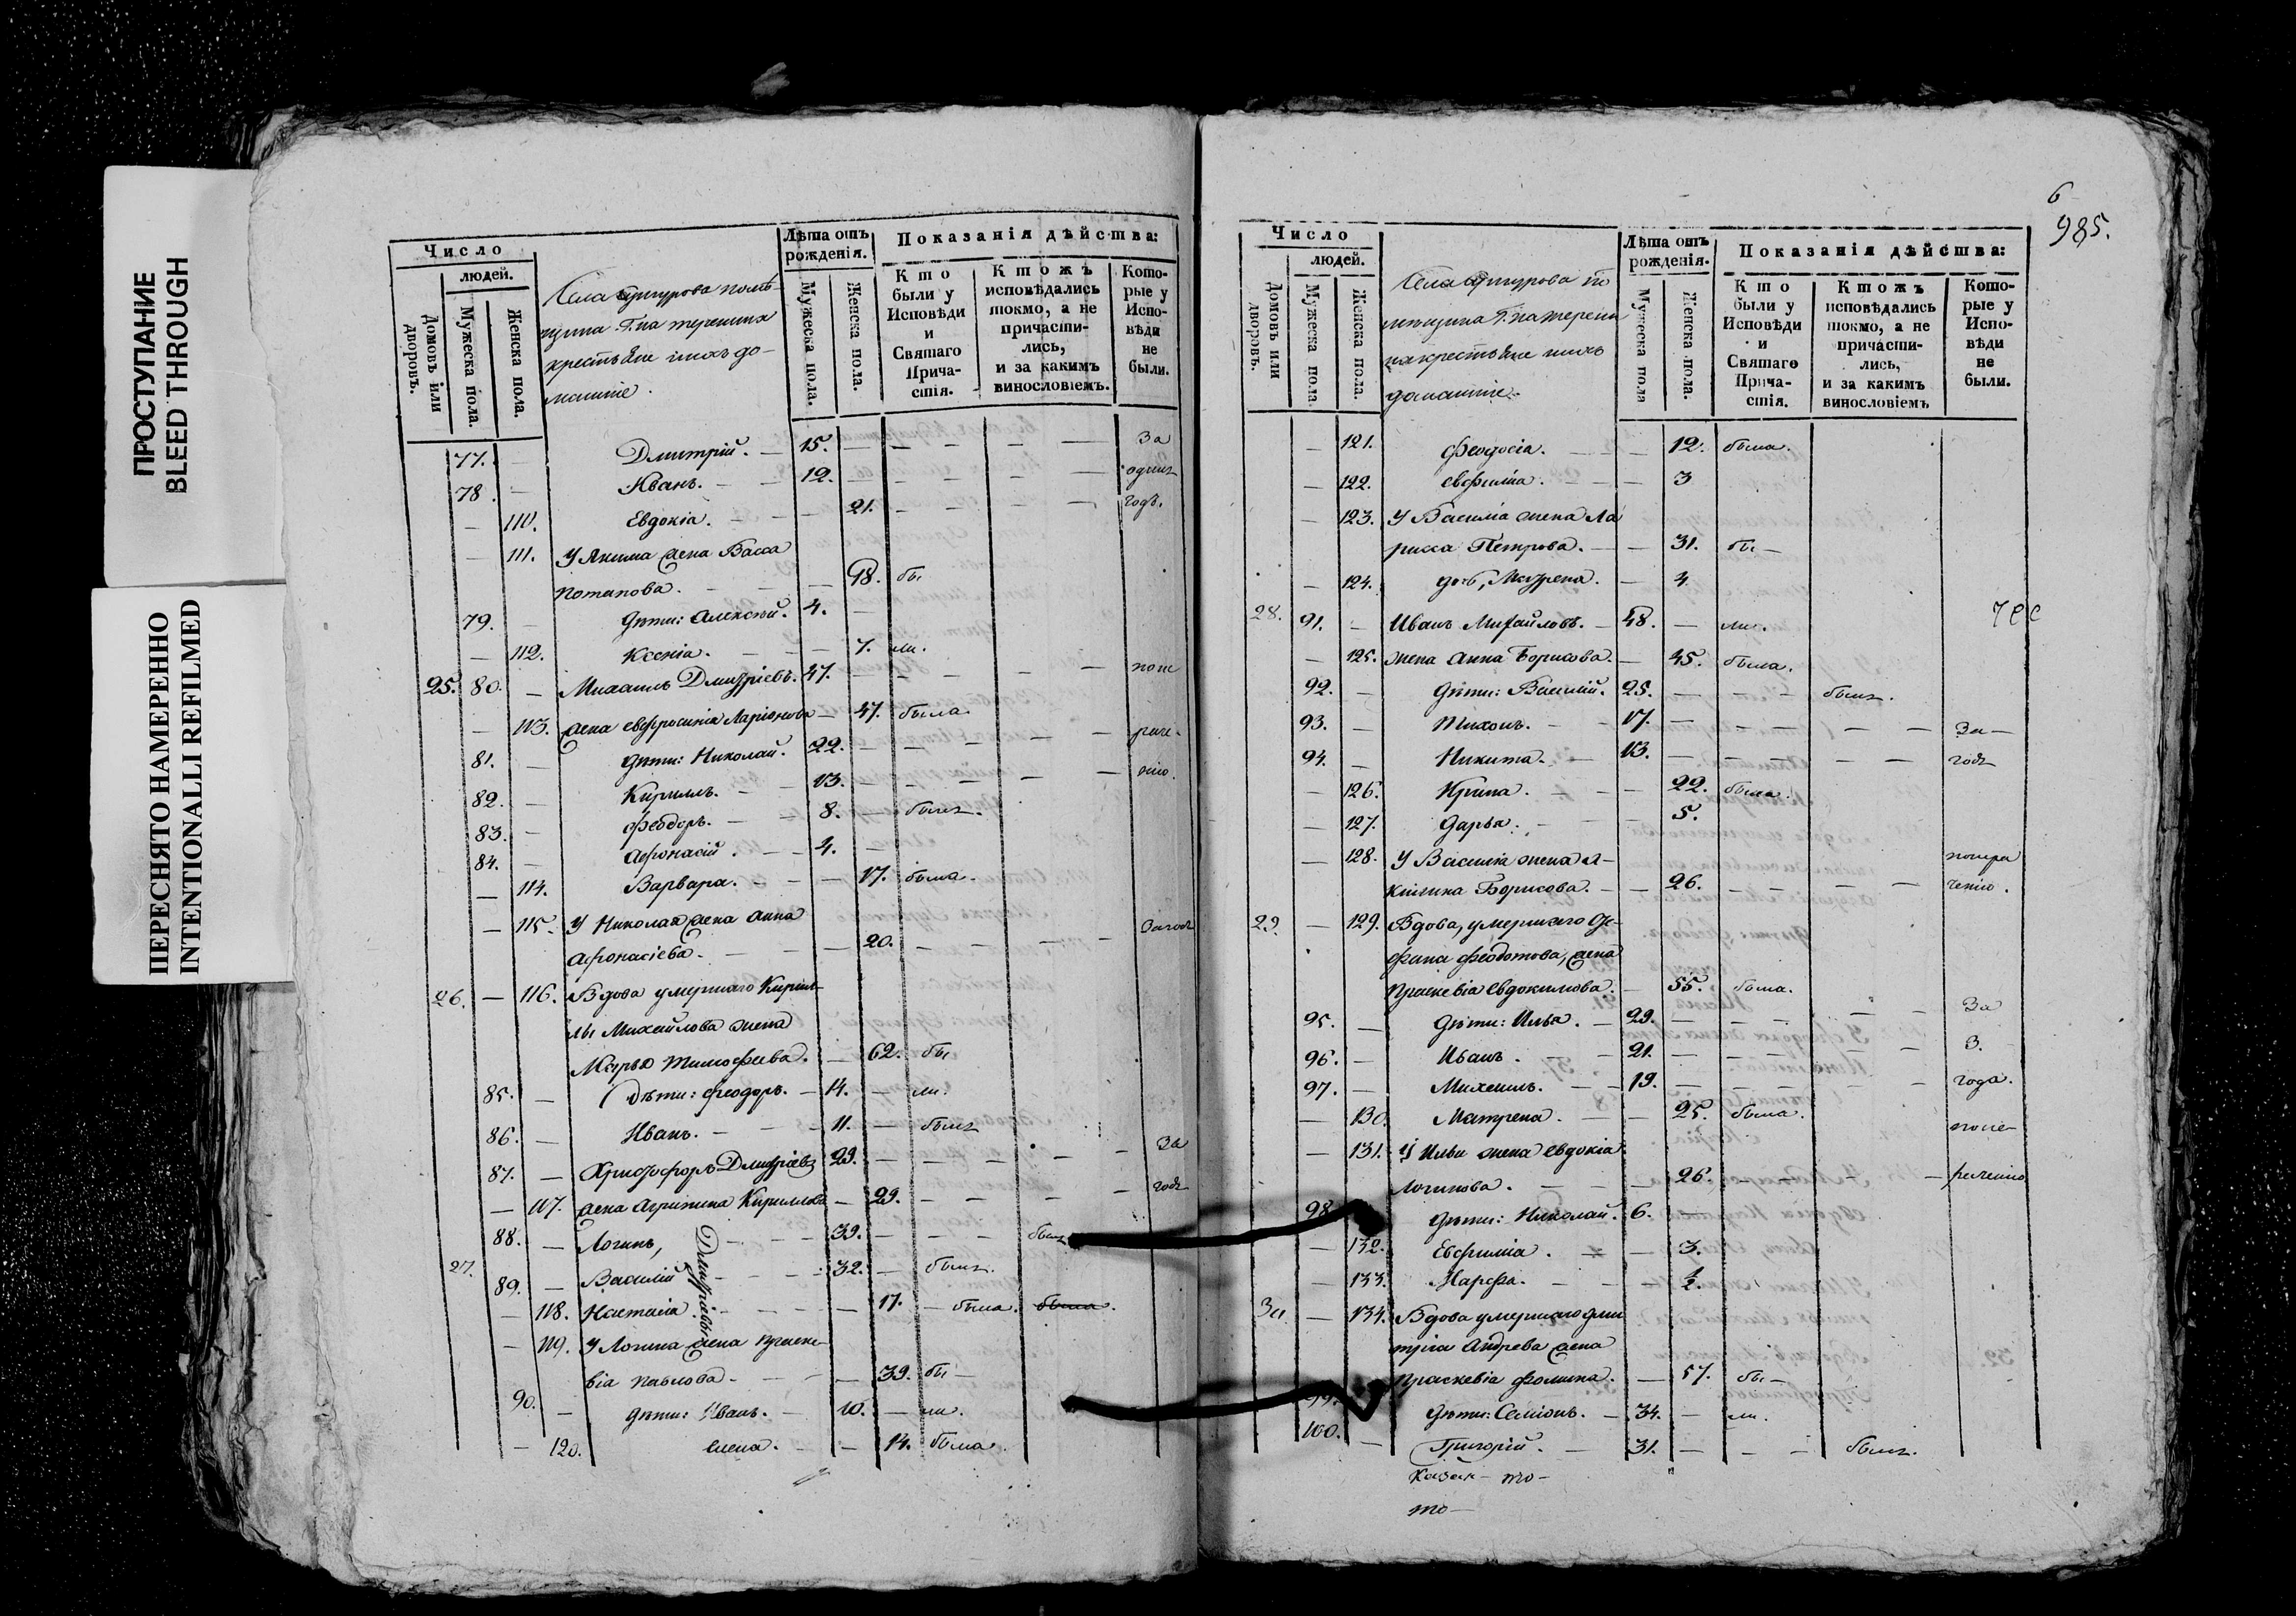 ПРОСТУПАНИЕ
BLEED THROUGH
ПЕРЕСНЯТО НАМЕРЕННО
INTENTIONALLI REFILMED
Число
людей.
Домовъ или дворовъ.
Мужеска пола.
Женска пола.
Села
крестьяне ихъ до-
машніе.
Лѣта отъ рожденія.
Мужеска пола.
Женска пола.
Показанія дѣйства:
Кто были у Исповѣди и Святаго Причастія.
Ктожъ исповѣдались токмо, а не причастились, и за какимъ винословіемъ.
Которые у Исповѣди не были.
77. — Дмитрій. — 15. — — — — За
78. — Иванъ. — 12. — — — — одинъ
— 110. Евдокія. — — 21. — — — годъ.
— 111. У Якима жена Васса
Потапова. — — 48. бы
79. — дѣти: Алексѣй. 4. —
— 112. Ксенія. — — 7. ли.
25. 80. — Михаилъ Дмитріевъ. 47. — — — — попе
— 113. жена Евфросинія Ларіонова — 47. была.
81. — дѣти: Николай. 22. — — — — раче-
82. — Кириллъ. — 13. — — — — нію.
83. — Феодоръ. — 8. — былъ.
84. — Афонасій. — 4. —
— 114. Варвара. — — 17. была.
— 115. У Николая жена Анна
Афонасіева. — — 20. — — — За годъ
26. — 116. Вдова умершаго Кирил-
лы Михайлова жена
Марья Тимофеева. — 62. бы
85. — Дѣти: Феодоръ. — 14. — ли.
86. — Иванъ. — 11. — былъ
87. — Христофоръ Дмитріевъ 29. — — — — За
— 117. жена Агрипина Кирилова — 29. — — — годъ
88. — Логинъ, — 39. — — — былъ
Дмитріевы
27. 89. — Василій — 32. — былъ.
— 118. Настасія. — — 17. — была. была.
— 119. У Логина жена Праске-
вія Павлова. — — 39. бы —
90. — дѣти: Иванъ. — 10. — ли.
— 120. Елена. — — 14. была.
6
985.
Число
людей.
Домовъ или дворовъ.
Мужеска пола.
Женска пола.
Села
крестьяне ихъ
домашніе.
Лѣта отъ рожденія.
Мужеска пола
Женска пола.
Показанія дѣйства:
Кто были у Исповѣди и Святаго Причастія.
Ктожъ исповѣдались токмо, а не причастились, и за какимъ винословіемъ
Которые у Исповѣди не были.
— 121. Феодосія. — — 12. была.
— 122. Евфимія. — — 3
— 123. У Василія жена Ла
рисса Петрова. — — 31. бы —
— 124. дочь, Матрена. — 4.
28. 91. — Иванъ Михайловъ. — 48. — ли.
— 125. жена Анна Борисова. — 45. была.
92. — дѣти: Василій. 25. — — — былъ.
93. — Тихонъ. — 17. — — — — За —
94. — Никита. — 13. — — — — годъ
— 126. Ирина. — — 22. была.
— 127. Дарья. — — 5.
— 128. У Василія жена А- попра
килина Борисова. — — 26. — — — ченію.
29. — 129. Вдова, умершаго
Феодотова, жена
Праскевія Евдокимова. — 55. была.
95. — дѣти: Илья. — 29. — — — — За
96. — Иванъ. — 21. — — — — 3.
97. — Михаилъ. — 19. — — — — года.
— 130. Матрена. — — 25. была.
— 131. У Ильи жена Евдокія попе-
Логинова. — — 26. — — — раченію
98. дѣти: Николай. 6. —
— 132. Евфимія. — — 3.
— 133. Марфа. — — ½.
— 134. Вдова умершаго Дми
трія Андрева жена
Праскевія Фомина. — 57. бы —
99. дѣти: Семіонъ. — 34. — ли.
100. — Григорій. — 31. — — — былъ.